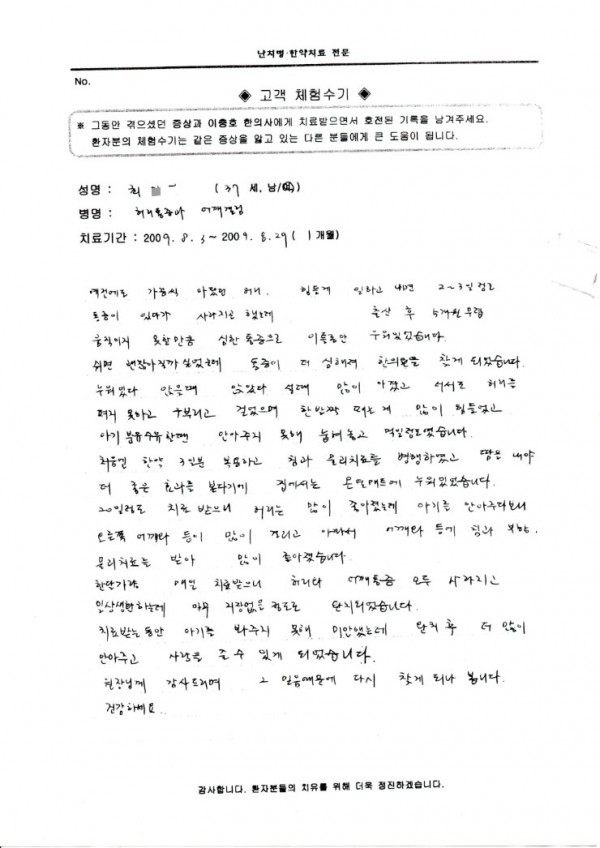 난치병·한약치료 전문
No.
◈ 고객 체험수기 ◈
※ 그동안 겪으셨던 증상과 이충호 한의사에게 치료받으면서 호전된 기록을 남겨주세요.
환자분의 체험수기는 같은 증상을 앓고 있는 다른 분들에게 큰 도움이 됩니다.
성명 : 최 ( 37 세, 남/여)
병명 : 허리통증과 어깨결림
치료기간 : 2009. 8. 3 ~ 2009. 8. 29 ( 1 개월)
예전에도 가끔씩 아팠던 허리. 힘들게 일하고 나면 2~3일 정도
통증이 있다가 사라지곤 했는데 출산 후 5개월 무렵
움직이지 못할만큼 심한 통증으로 이틀동안 누워있었습니다.
쉬면 괜찮아질까 싶었는데 통증이 더 심해져 한의원을 찾게 되었습니다.
누워있다 앉을때 앉았다 설때 많이 아팠고 서서도 허리를
펴지 못하고 구부리고 걸었으며 한발짝 떼는게 많이 힘들었고
아기 분유수유할땐 안아주지 못해 눕혀놓고 먹일정도였습니다.
처음엔 한약 3일분 복용하고 침과 물리치료를 병행하였고 땀을 내야
더 좋은 효과를 본다기에 집에서는 온돌매트에 누워있었습니다.
20일정도 치료 받으니 허리는 많이 좋아졌는데 아기를 안아주다보니
오른쪽 어깨와 등이 많이 결리고 아파서 어깨와 등에 침과 부항,
물리치료를 받아 많이 좋아졌습니다.
한달가량 매일 치료받으니 허리와 어깨통증 모두 사라지고
일상생활하는데 아무 지장없을 정도로 완치되었습니다.
치료받는동안 아기를 봐주지 못해 미안했는데 완치 후 더 많이
안아주고 사랑을 줄 수 있게 되었습니다.
원장님께 감사드리며 그 믿음때문에 다시 찾게 되나 봅니다.
건강하세요.
감사합니다. 환자분들의 치유를 위해 더욱 정진하겠습니다.